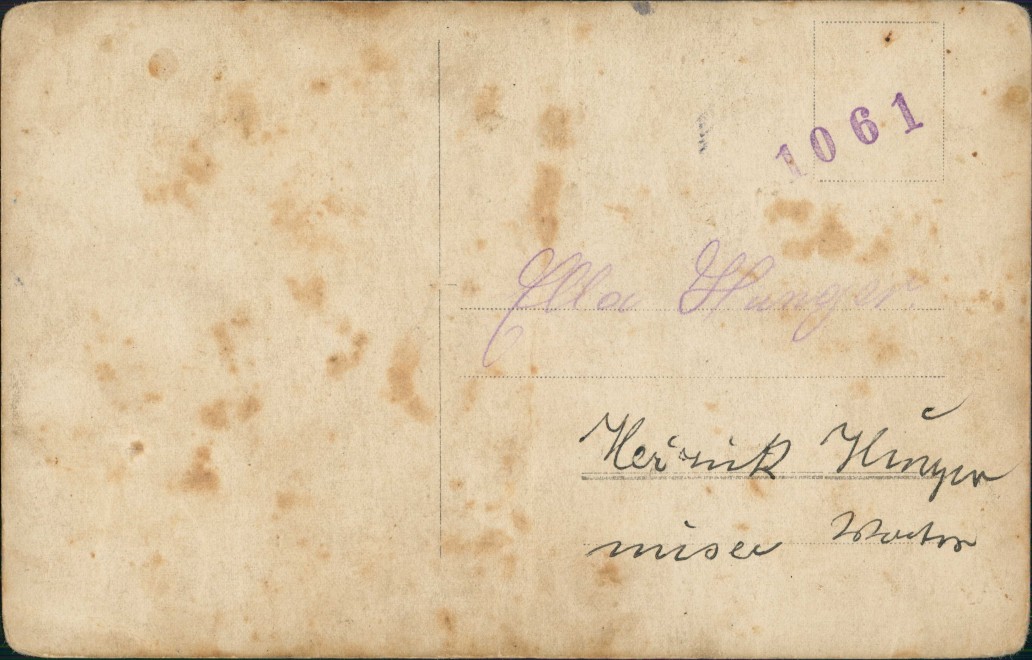 1061
Ella Hunger.
Heinrik Hunger
unser Vater